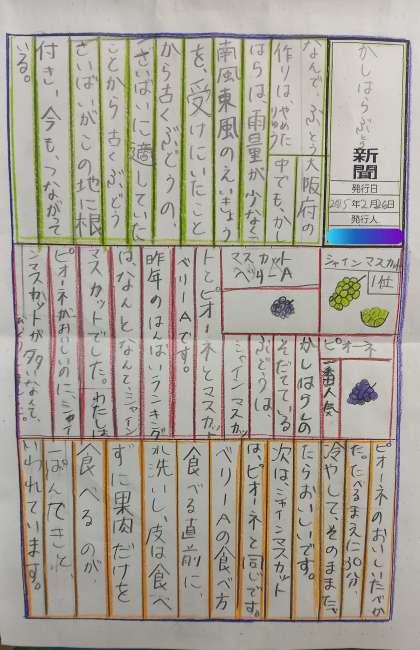 かしはらぶどう
新聞
発行日
2025年2月26日
発行人
なんで、ぶどう
作りは、やめた
りゆう
大阪府の
中でも、か
しはらは、雨量が少なく、
南風東風のえいきょう
を、受けにいたこと
から古くぶどうの、
さいばいに適していた
ことから古くぶどう
さいばいがこの地に根
付き、今も、つながて
いる。
シャインマスカット
1位
マスカット
ベリーA
ピオーネ
一番人気
かしはらの
そだてている
ぶどうは、
シャインマスカッ
トとピオーネとマスカット
ベリーAです。
昨年のはんばいランキング
は、なんとなんと、シャイン
マスカットでした。わたしは、
ピオーネがおいしいのに、シャイ
ンマスカットが多いなんて、
ピオーネのおいしいたべか
た。たべるまえに30分、
冷やして、そのままたべ
たらおいしいです。
次は、シャインマスカット
は、ピオーネと同じです。
ベリーAの食べ方
食べる直前に、
洗いし、皮は食べ
ずに果肉だけを
食べるのが、
いわれています。